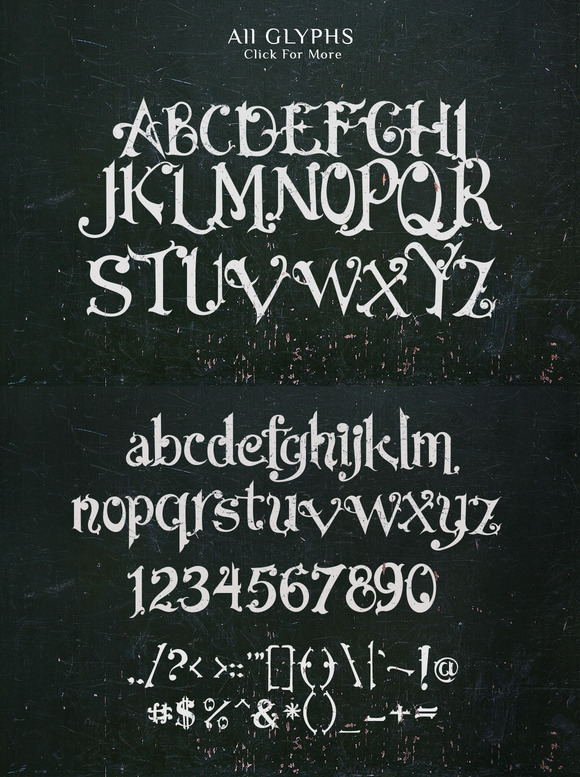 All GLYPHS
Click For More
ABCDEFGHI
JKLMNOPQR
STUVWXYZ
abcdefghijklm
nopqrstuvwxyz
1234567890
../?<>::'"[]{}\|`~!@
#$%^&*()_-+=